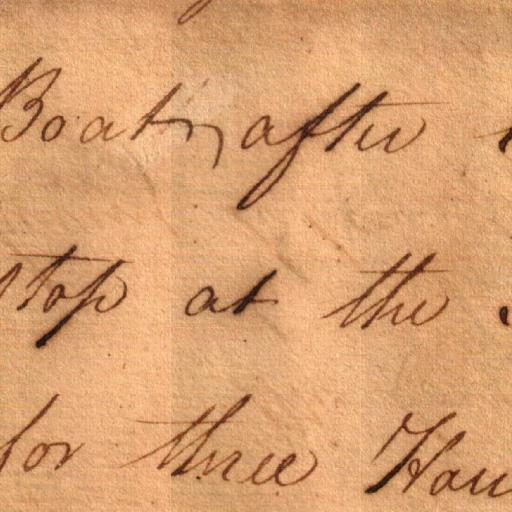 Boat, after
stop at the
for three Hou